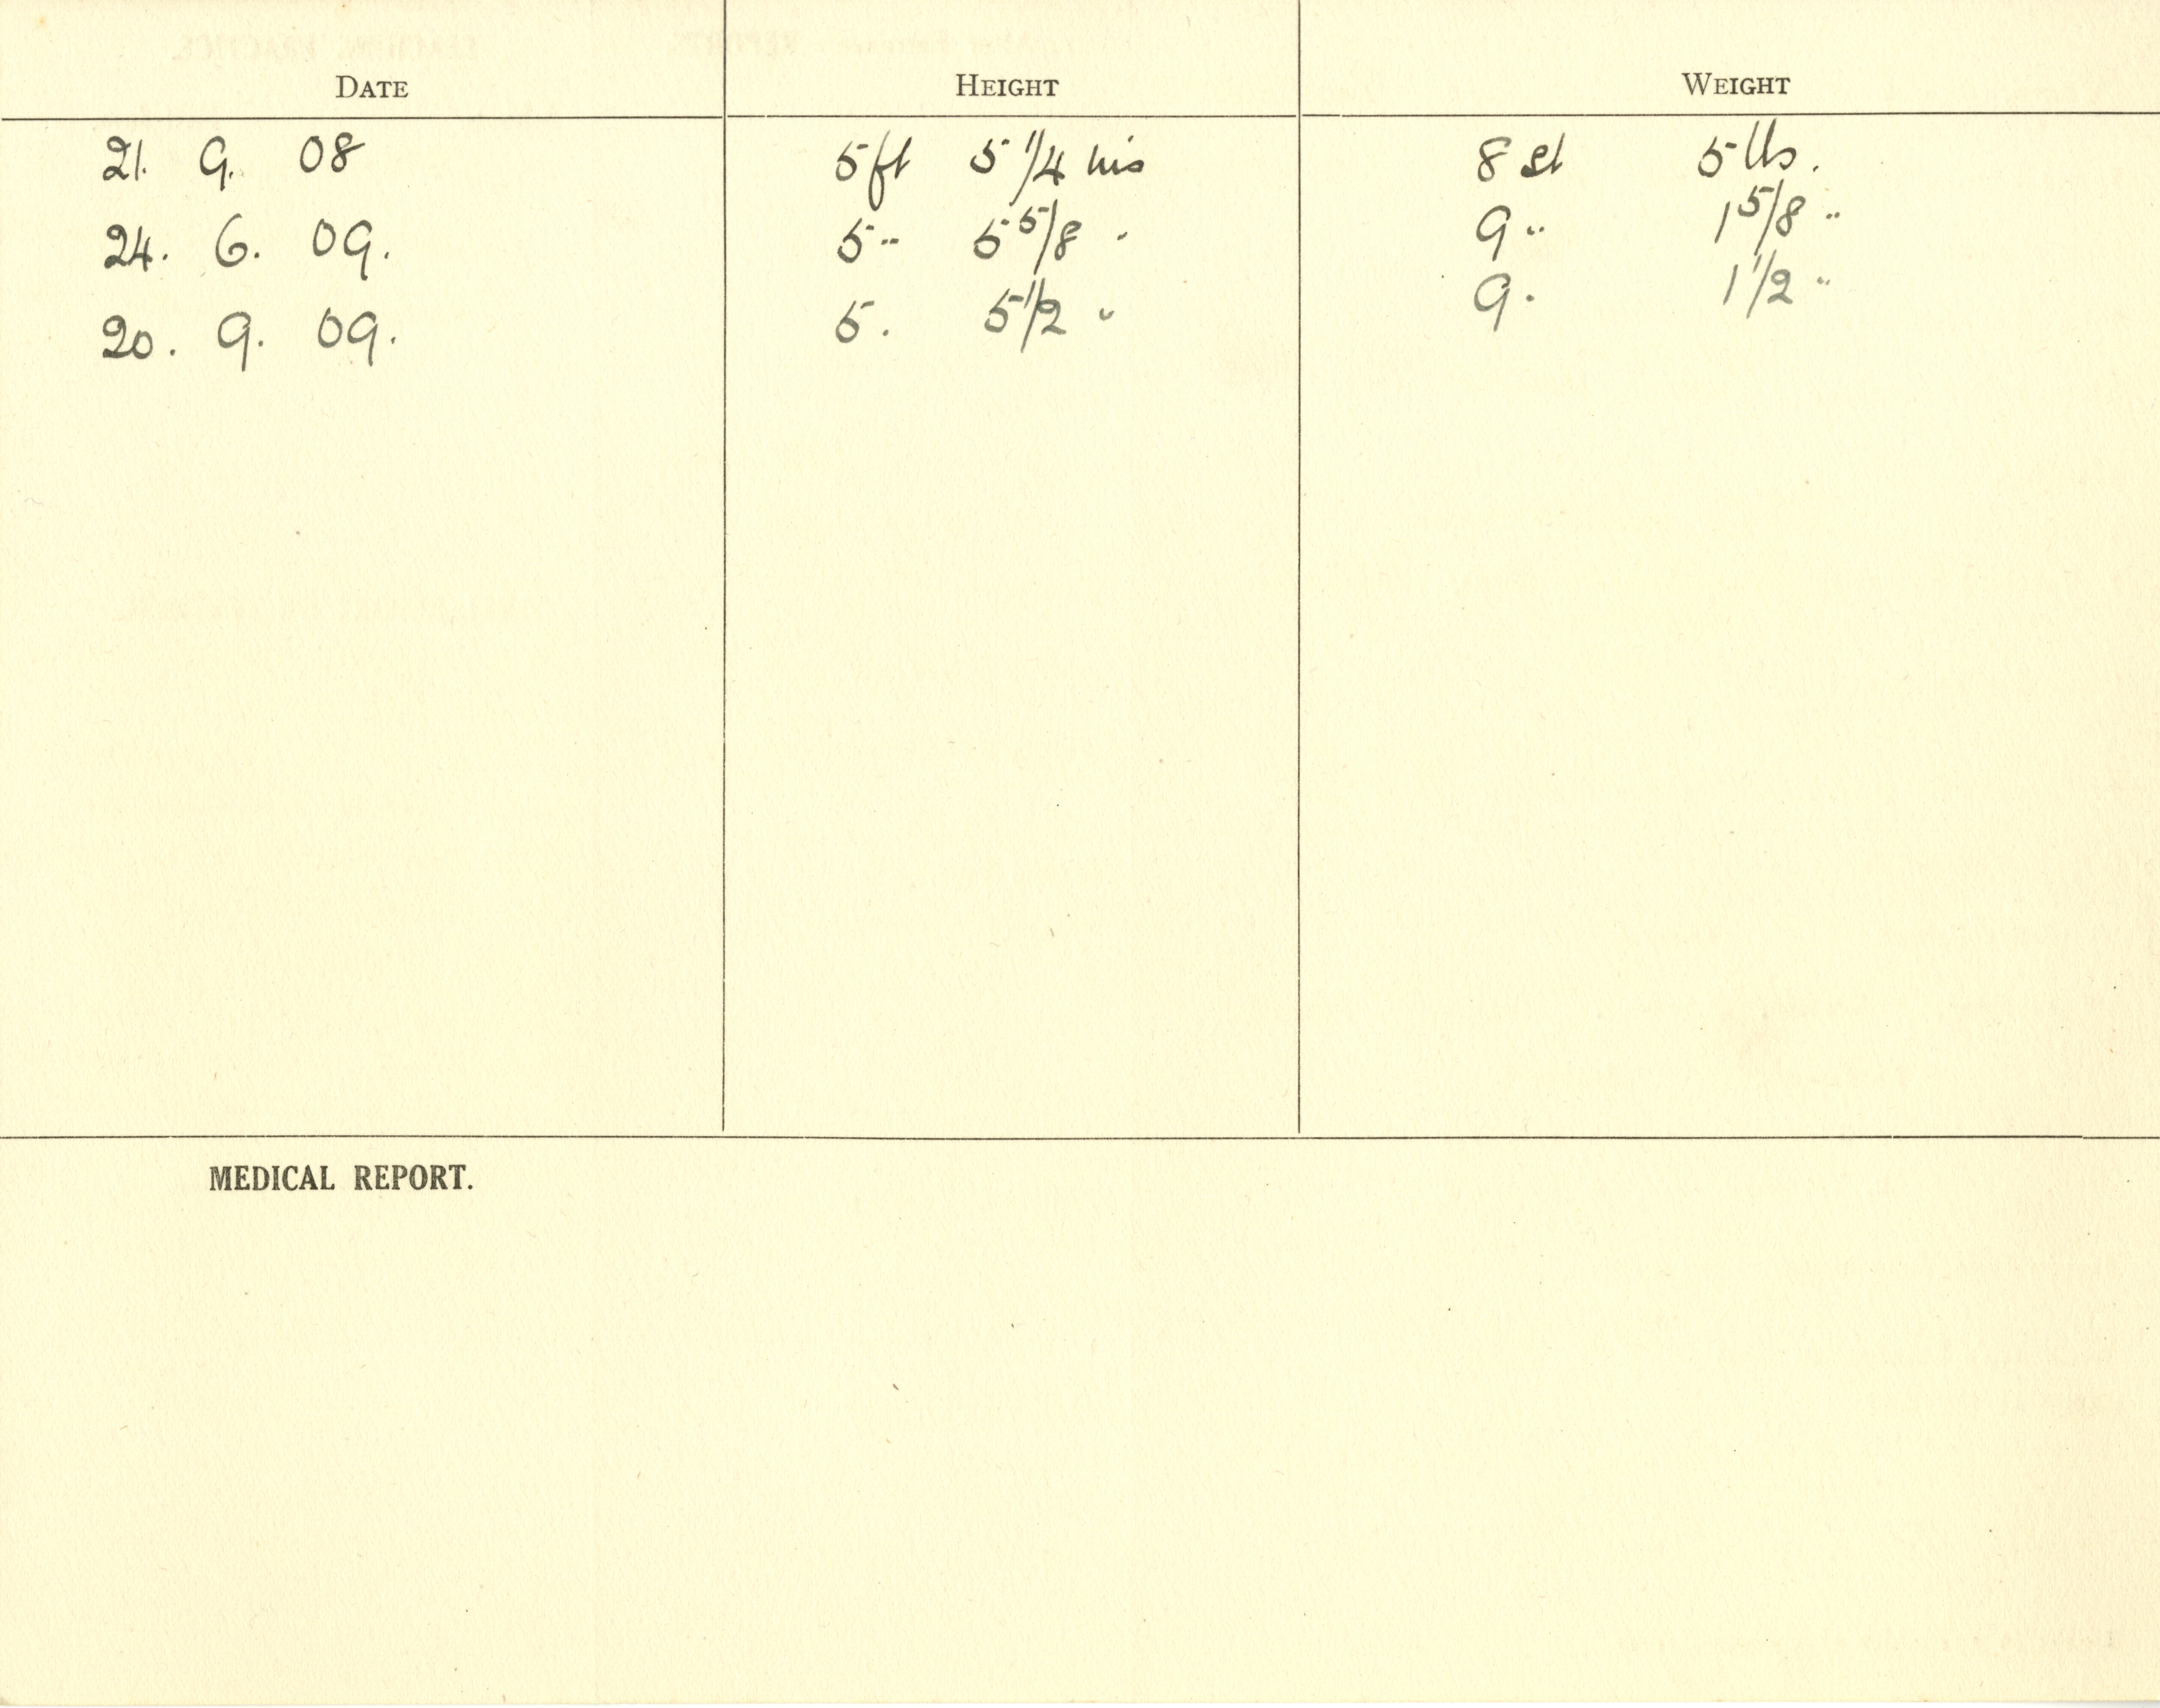 DATE HEIGHT WEIGHT
21. 9. 08 5ft 5 1/4 ins 8 st 5 lbs.
24. 6. 09. 5 " 5 5/8 " 9 " 1 5/8 "
20. 9. 09. 5 . 5 1/2 " 9 . 1 1/2 "
MEDICAL REPORT.